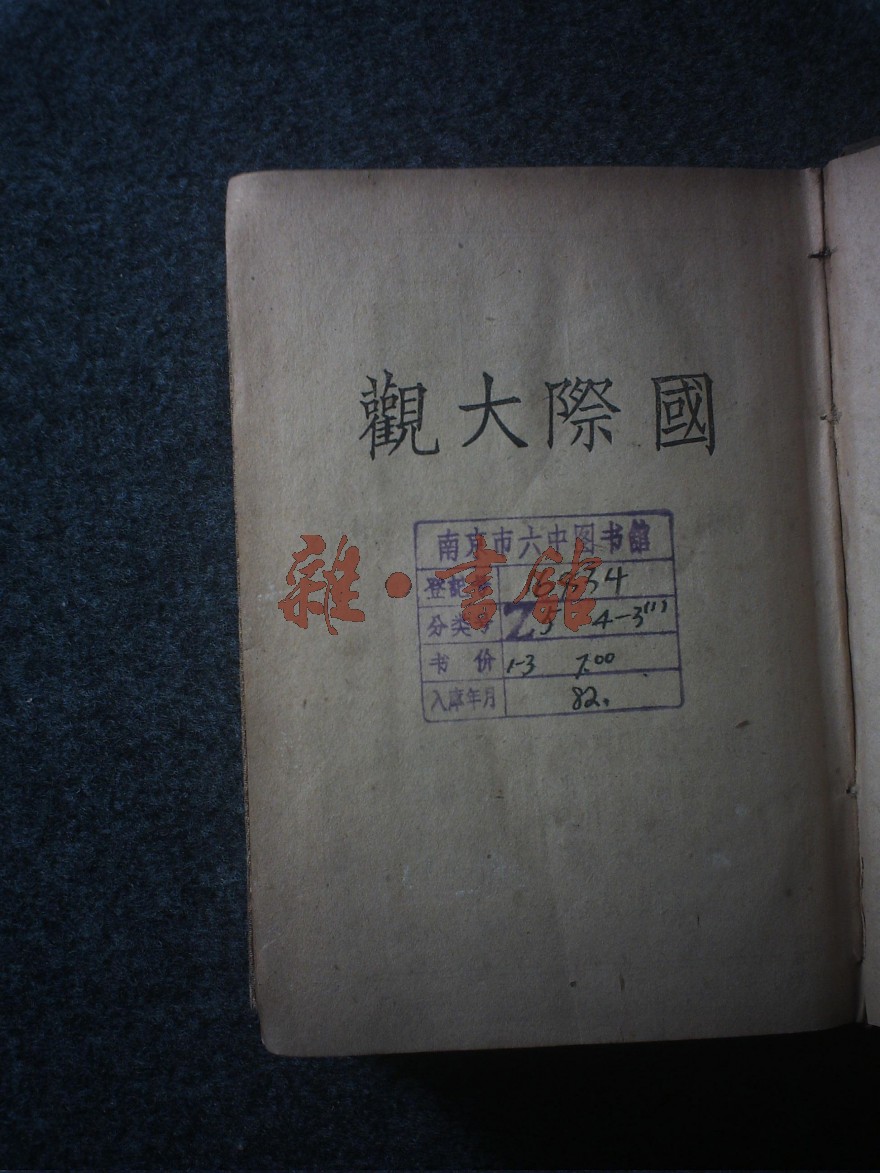 國際大觀
南京市六中图书館
雜·書館
登記号 16834
分类号 Z 3 4-3(1)
书价 1-3 7.00
入庫年月 82.